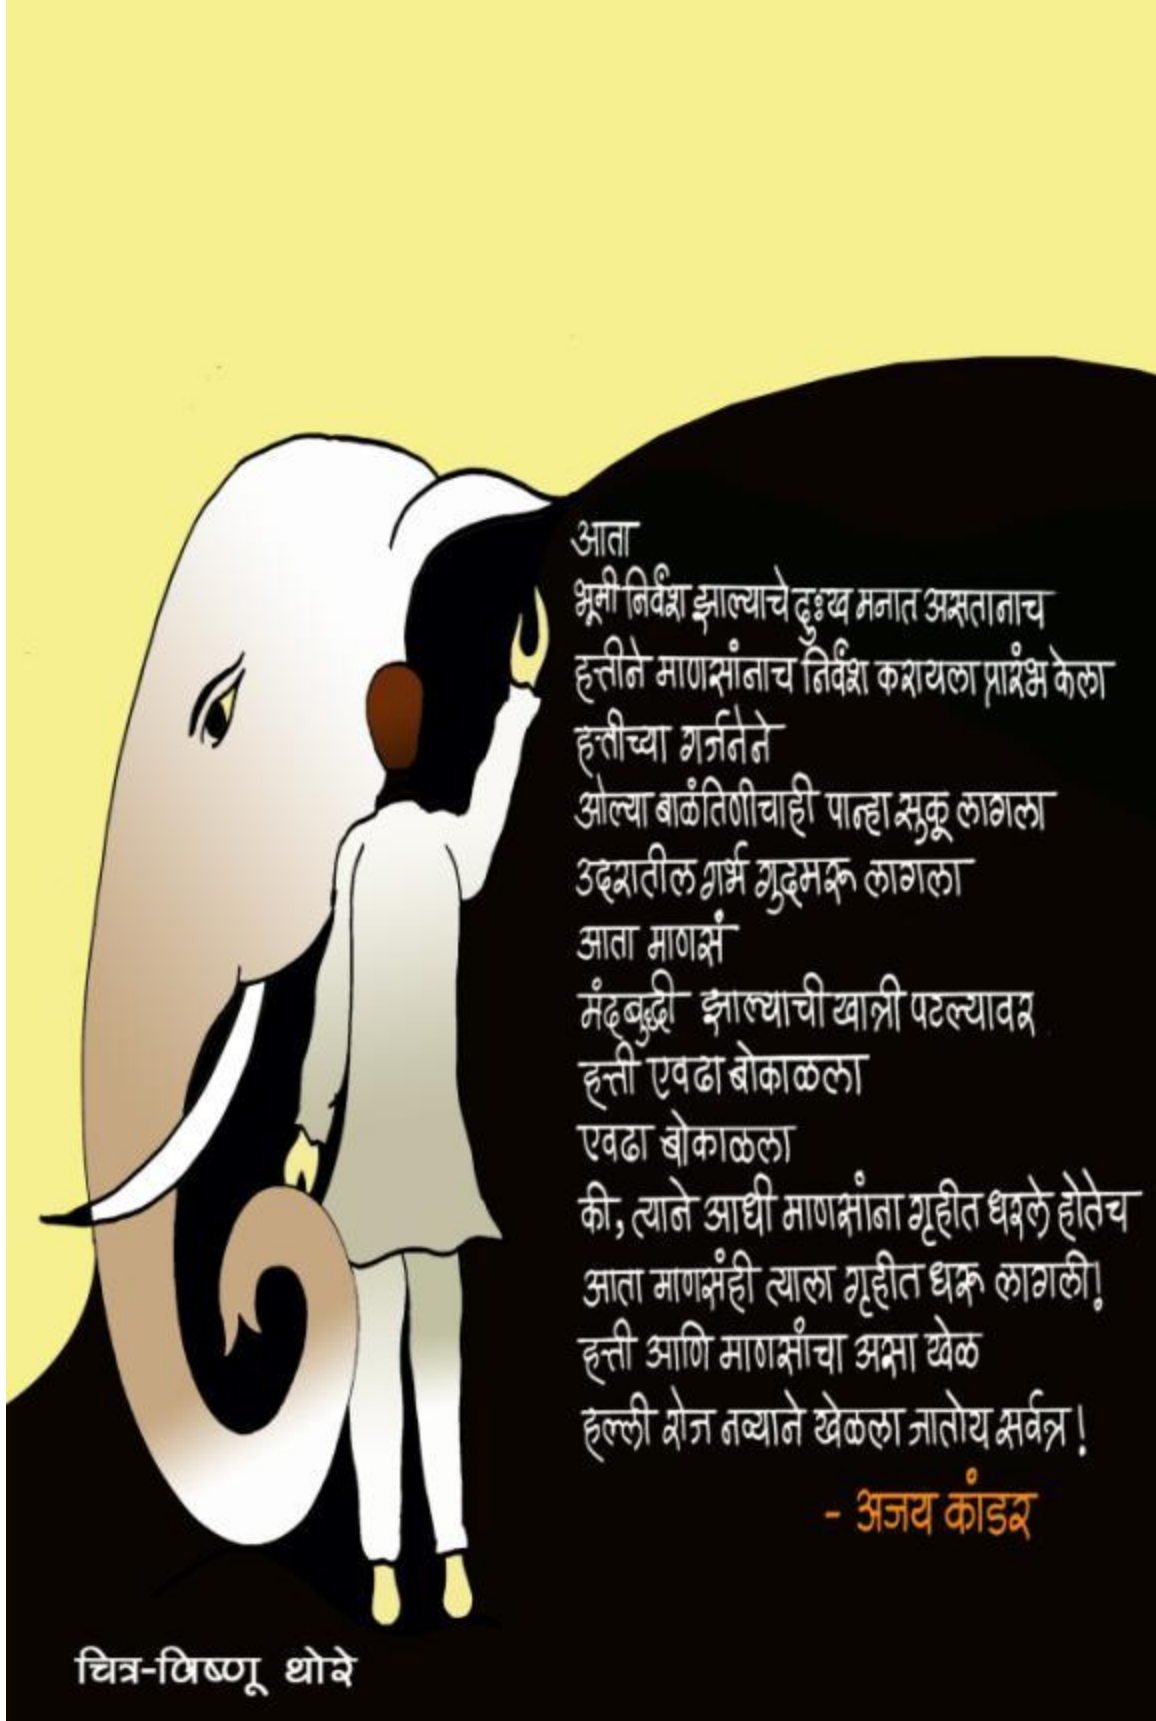 आता
भूमी निर्वंश झाल्याचे दुःख मनात असतानाच
हत्तीने माणसांनाच निर्वंश करायला प्रारंभ केला
हत्तीच्या गर्जनेने
ओल्या बाळंतिणीचाही पान्हा सुकू लागला
उदरातील गर्भ गुदमरू लागला
आता माणसं
मंदबुद्धी झाल्याची खात्री पटल्यावर
हत्ती एवढा बोकाळला
एवढा बोकाळला
की, त्याने आधी माणसांना गृहीत धरले होतेच
आता माणसंही त्याला गृहीत धरू लागली!
हत्ती आणि माणसांचा असा खेळ
हल्ली रोज नव्याने खेळला जातोय सर्वत्र!
- अजय कांडर
चित्र-विष्णू थोरे